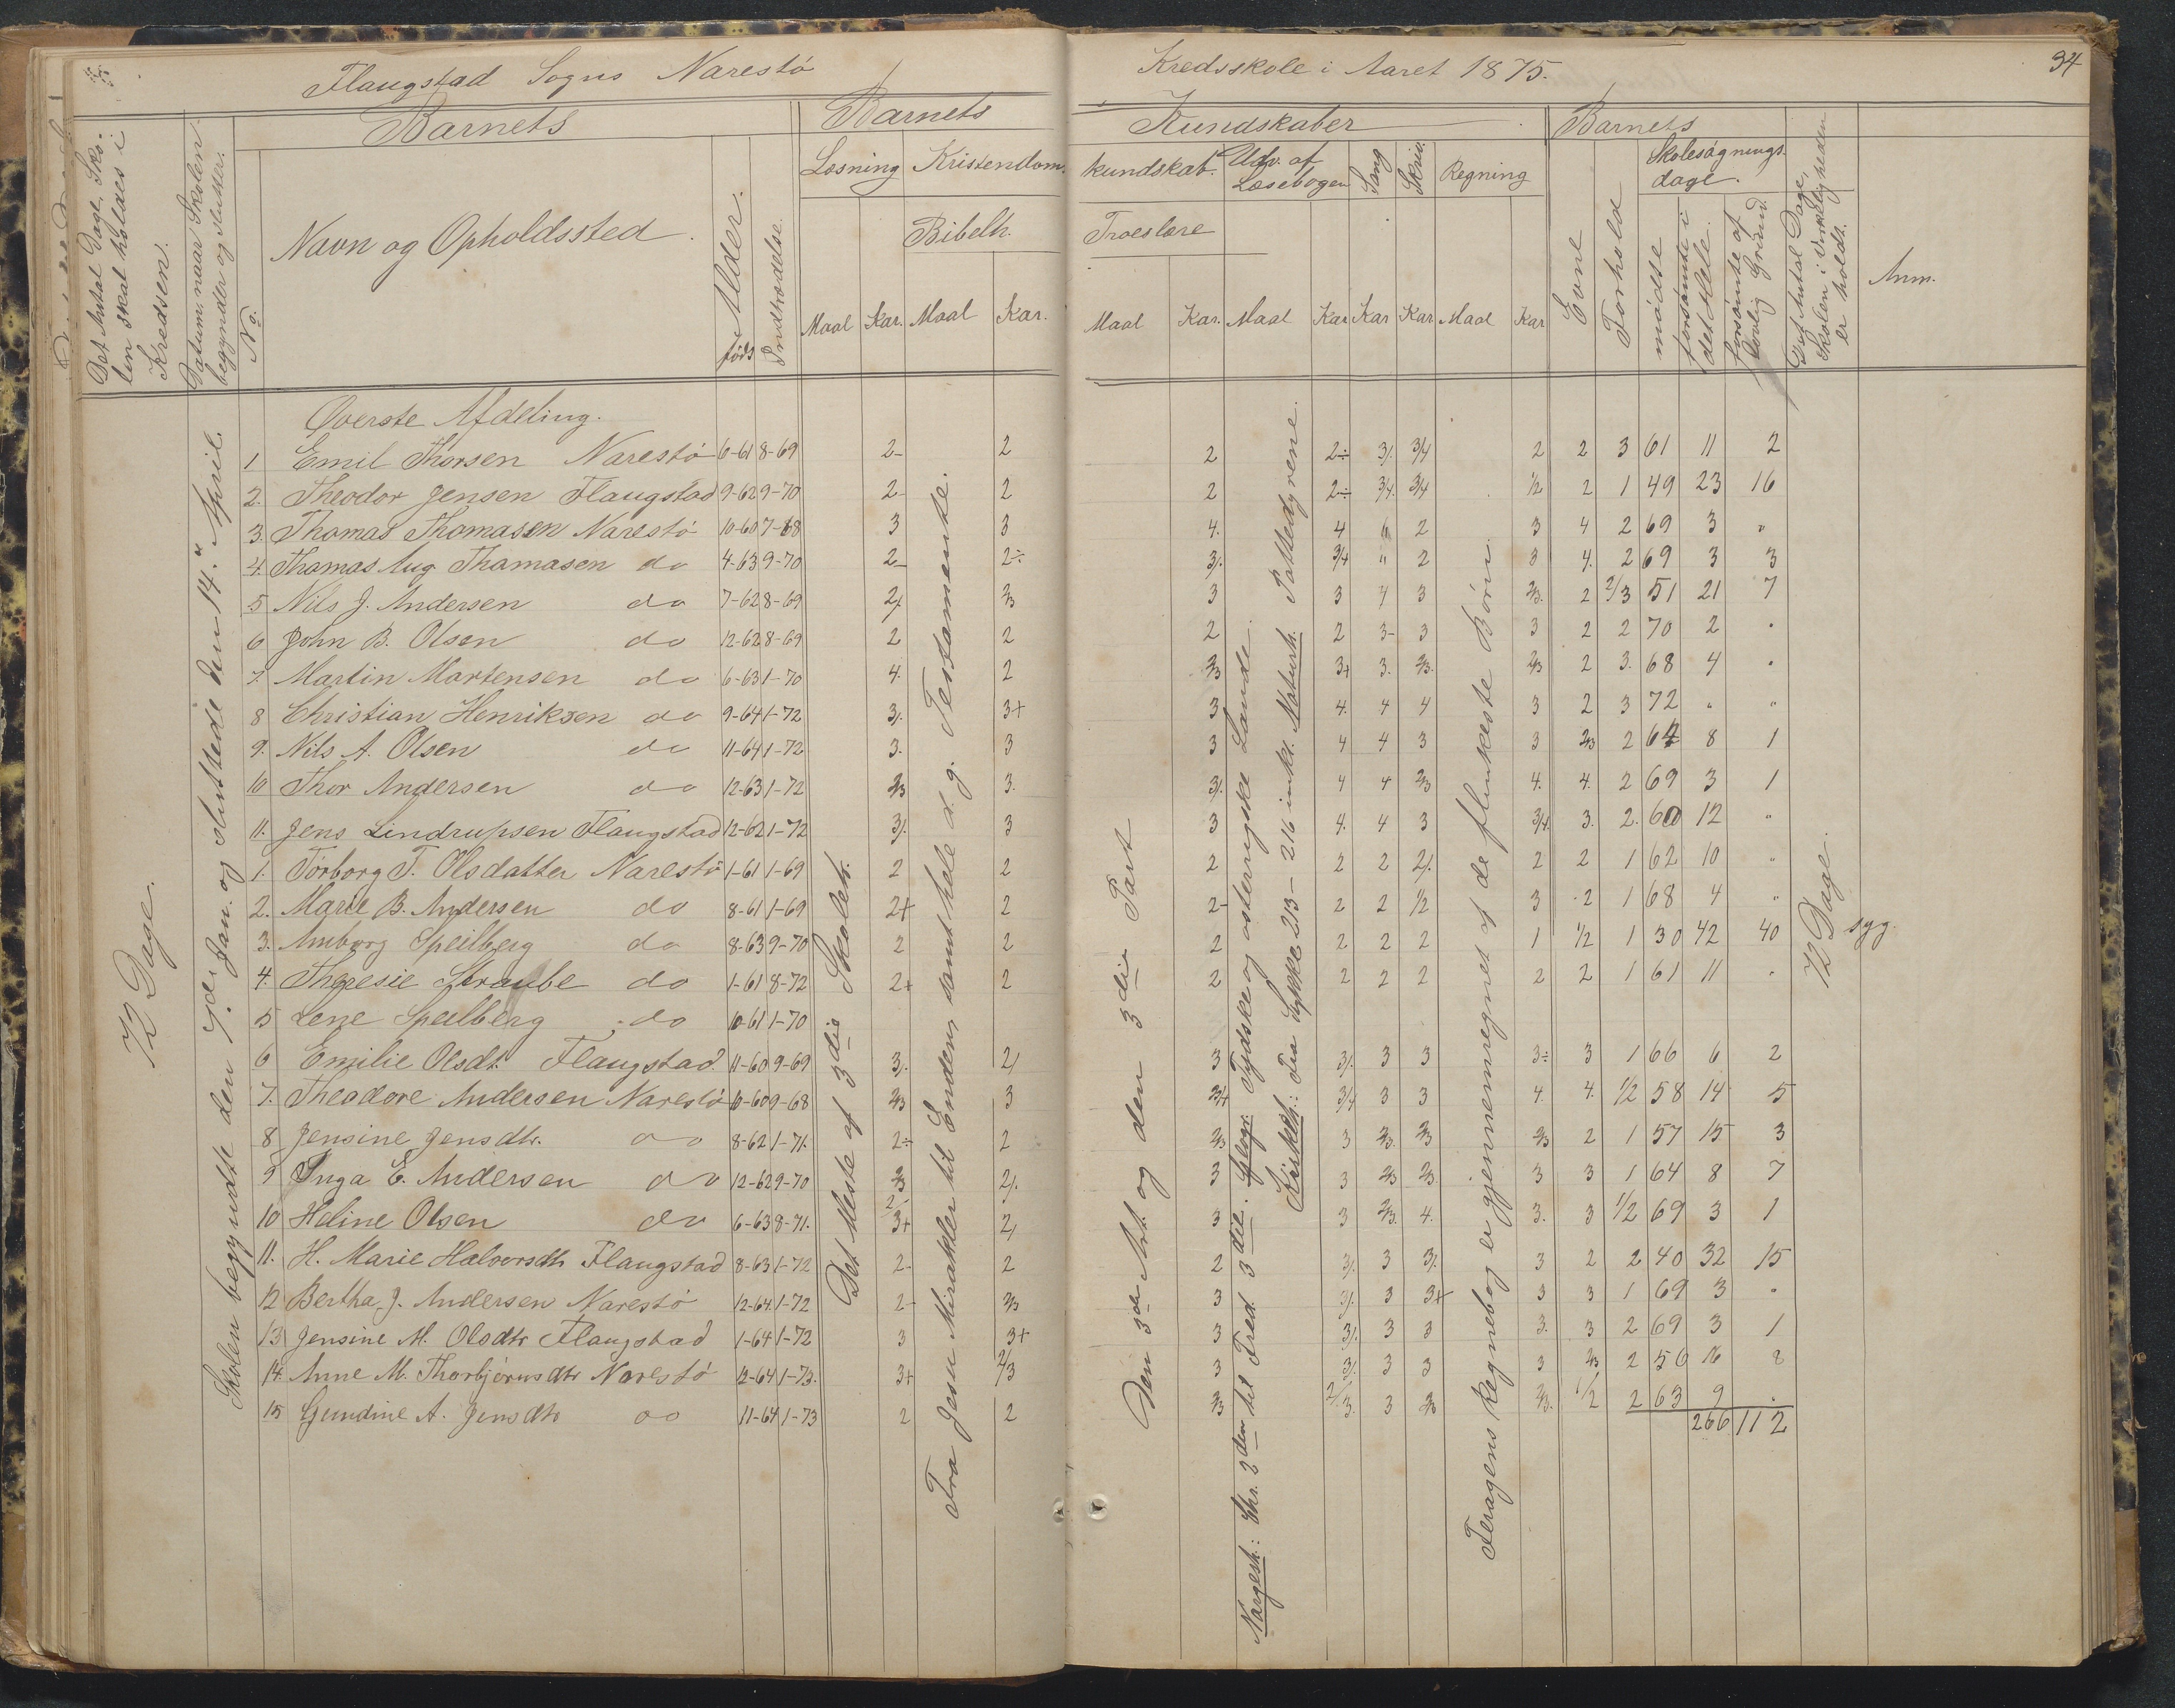 Flaugstad Sogns Narestø Kredsskole i Aaret 1875. 34
Det Antal Dage, Skolen skal holdes i Kredsen.
Datum, naar Skolen begynder og slutter.
Barnets Barnets Kundskaber Barnets
No. Navn og Opholdssted. Alder. født Indtrædelse.
Læsning Kristendom kundskab. Udv. af Læsebogen Sang Skriv. Regning
Bibelh. Troeslære
Maal Kar. Maal Kar. Maal Kar. Maal Kar Kar Kar Maal Kar
Evne Forhold Skolesøgningsdage. mødte forsømte i det Hele. forsømte af lovlig Grund.
Det Antal Dage, Skolen i Virkeligheden er holdt. Anm.
72 Dage.
Skolen begyndte den 7de Jan. og sluttede den 14." April.
Det Meste af 3die Skoletr.
Fra Jesu Mirakler til Enden samt hele d. g. Testamente.
Den 3die Art. og den 3die Part
Norgesh.: Chr. 2den til Fred. 3die. Geogr. Tydske og østerrigske Lande.
Kirkeh.: Fra Stykke 213 – 216 inkl. Naturh. Pattedyrene.
Feragens Regnebog er gjennemregnet af de flinkeste Børn.
72 Dage.
Øverste Afdeling.
1 Emil Thorsen Narestø 6-61 8-69 2- 2 2 2÷ 3/. 3/4 2 2 3 61 11 2
2. Theodor Jensen Flaugstad 9-62 9-70 2- 2 2 2÷ 3/4. 3/4 1/2 2 1 49 23 16
3. Thomas Thomasen Narestø 10-60 7-68 3 3 4. 4 6 2 3 4 2 69 3 "
4. Thomas Aug Thomasen do 4-63 9-70 2- 2÷ 3/. 3/4 " 2 3 4. 2 69 3 3
5 Nils J. Andersen do 7-62 8-69 2/ 2/3 3 3 4 3 2/3. 2 2/3 51 21 7
6 John B. Olsen do 12-62 8-69 2 2 2 2 3- 3 3 2 2 70 2 "
7. Martin Mortensen do 6-63 1-70 4. 2 2/3 3+ 3. 2/3. 2/3 2 3. 68 4 "
8 Christian Henriksen do 9-64 1-72 3/. 3+ 3 4. 4 4 3 2 3 72 " "
9. Nils A. Olsen do 11-64 1-72 3. 3 3 4 4 3 3 2/3 2 64 8 1
10 Thor Andersen do 12-63 1-72 2/3 3. 3/. 4 4 2/3 4. 4. 2 69 3 1
11. Jens Lindrupsen Flaugstad 12-62 1-72 3/. 3 3 4. 4 3 3/4. 3. 2. 60 12 "
1. Torborg T. Olsdatter Narestø 1-61 1-69 2 2 2 2 2 2/. 2 2 1 62 10 "
2. Marie B. Andersen do 8-61 1-69 2+ 2 2- 2 2 1/2 3 2 1 68 4 "
3. Amborg Speilberg do 8-63 9-70 2 2 2 2 2 2 1 1/2 1 30 42 40 syg.
4. Theresie Straube do 1-61 8-72 2+ 2 2 2 2 2 2 2 1 61 11 "
5 Lene Speilberg do 10-61 1-70
6 Emilie Olsdt. Flaugstad. 11-60 9-69 3/. 2/ 3 3/. 3 3 3÷ 3 1 66 6 2
7. Theodore Andersen Narestø 10-60 9-68 2/3 3 3/4 3/4 3 3 4. 4. 1/2 58 14 5
8 Jensine Jensdtr. do 8-62 1-71. 2÷ 2 2/3 3 2/3. 2/3 2/3 2 1 57 15 3
9 Inga E. Andersen do 12-62 9-70 2/3 2/. 3 3 2/3 2/3 3 3 1 64 8 7
10 Heline Olsen do 6-63 8-71. 3+ 2/ 3 3 2/3. 4. 3. 3 1/2 69 3 1
11. H. Marie Halvorsdtr Flaugstad 8-63 1-72 2- 2 2 3/. 3 3/. 3 2 2 40 32 15
12 Bertha J. Andersen Narestø 12-64. 1-72 2- 2/3 3 3/. 3 3+ 3 3 1 69 3 "
13 Jensine M. Olsdtr Flaugstad 1-64 1-72 3 3+ 3 3/. 3 3 3. 3 2 69 3 1
14. Anne M. Thorbjørnsdtr Narestø 12-64 1-73. 3+ 2/3 3 3/. 3 3 3 2/3 2 56 16 8
15 Gundine A. Jensdtr do 11-64 1-73 2 2 2/3 2/3. 3 2/3 2/3. 1/2 2 63 9 .
266 112